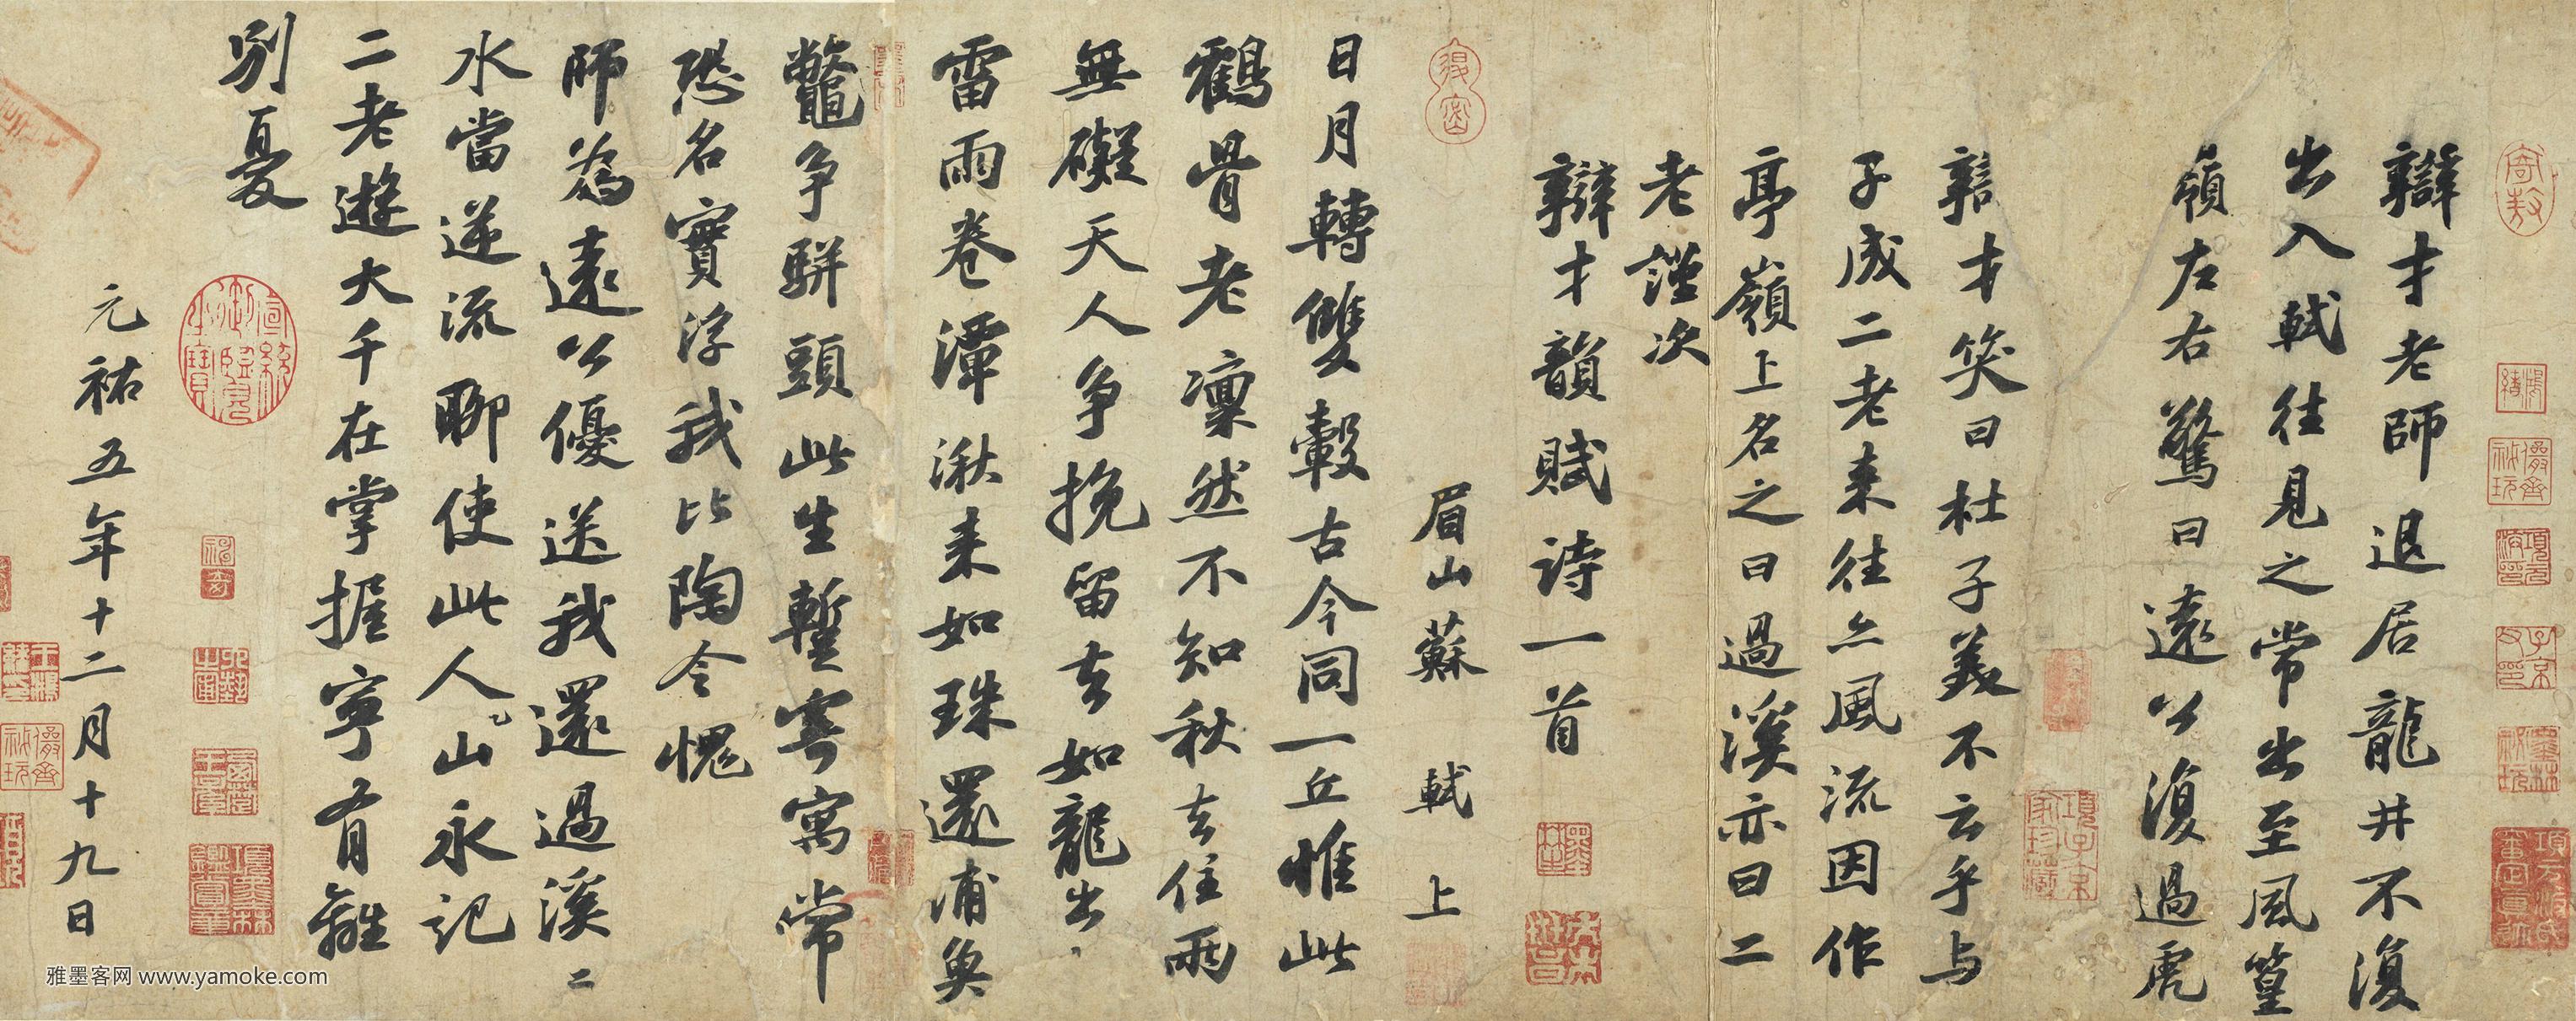 辯才老師退居龍井不復
出入軾往見之常出至風篁
嶺左右驚曰遠公復過虎
辯才笑曰杜子美不云乎与
子成二老来往亦風流因作
亭嶺上名之曰過溪亦曰二
老謹次
辯才韻賦詩一首
眉山蘇軾上
日月轉雙轂古今同一丘惟此
鶴骨老凛然不知秋去住兩
無礙天人争挽留去如龍出
雷雨卷潭湫来如珠還浦魚
鼈争駢頭此生蹔寄寓常
恐名實浮我比陶令愧
師為遠公優送我還過溪二
水當逆流聊使此人山永記
二老遊大千在掌握寧有離
別憂
元祐五年十二月十九日
雅墨客网 www.yamoke.com